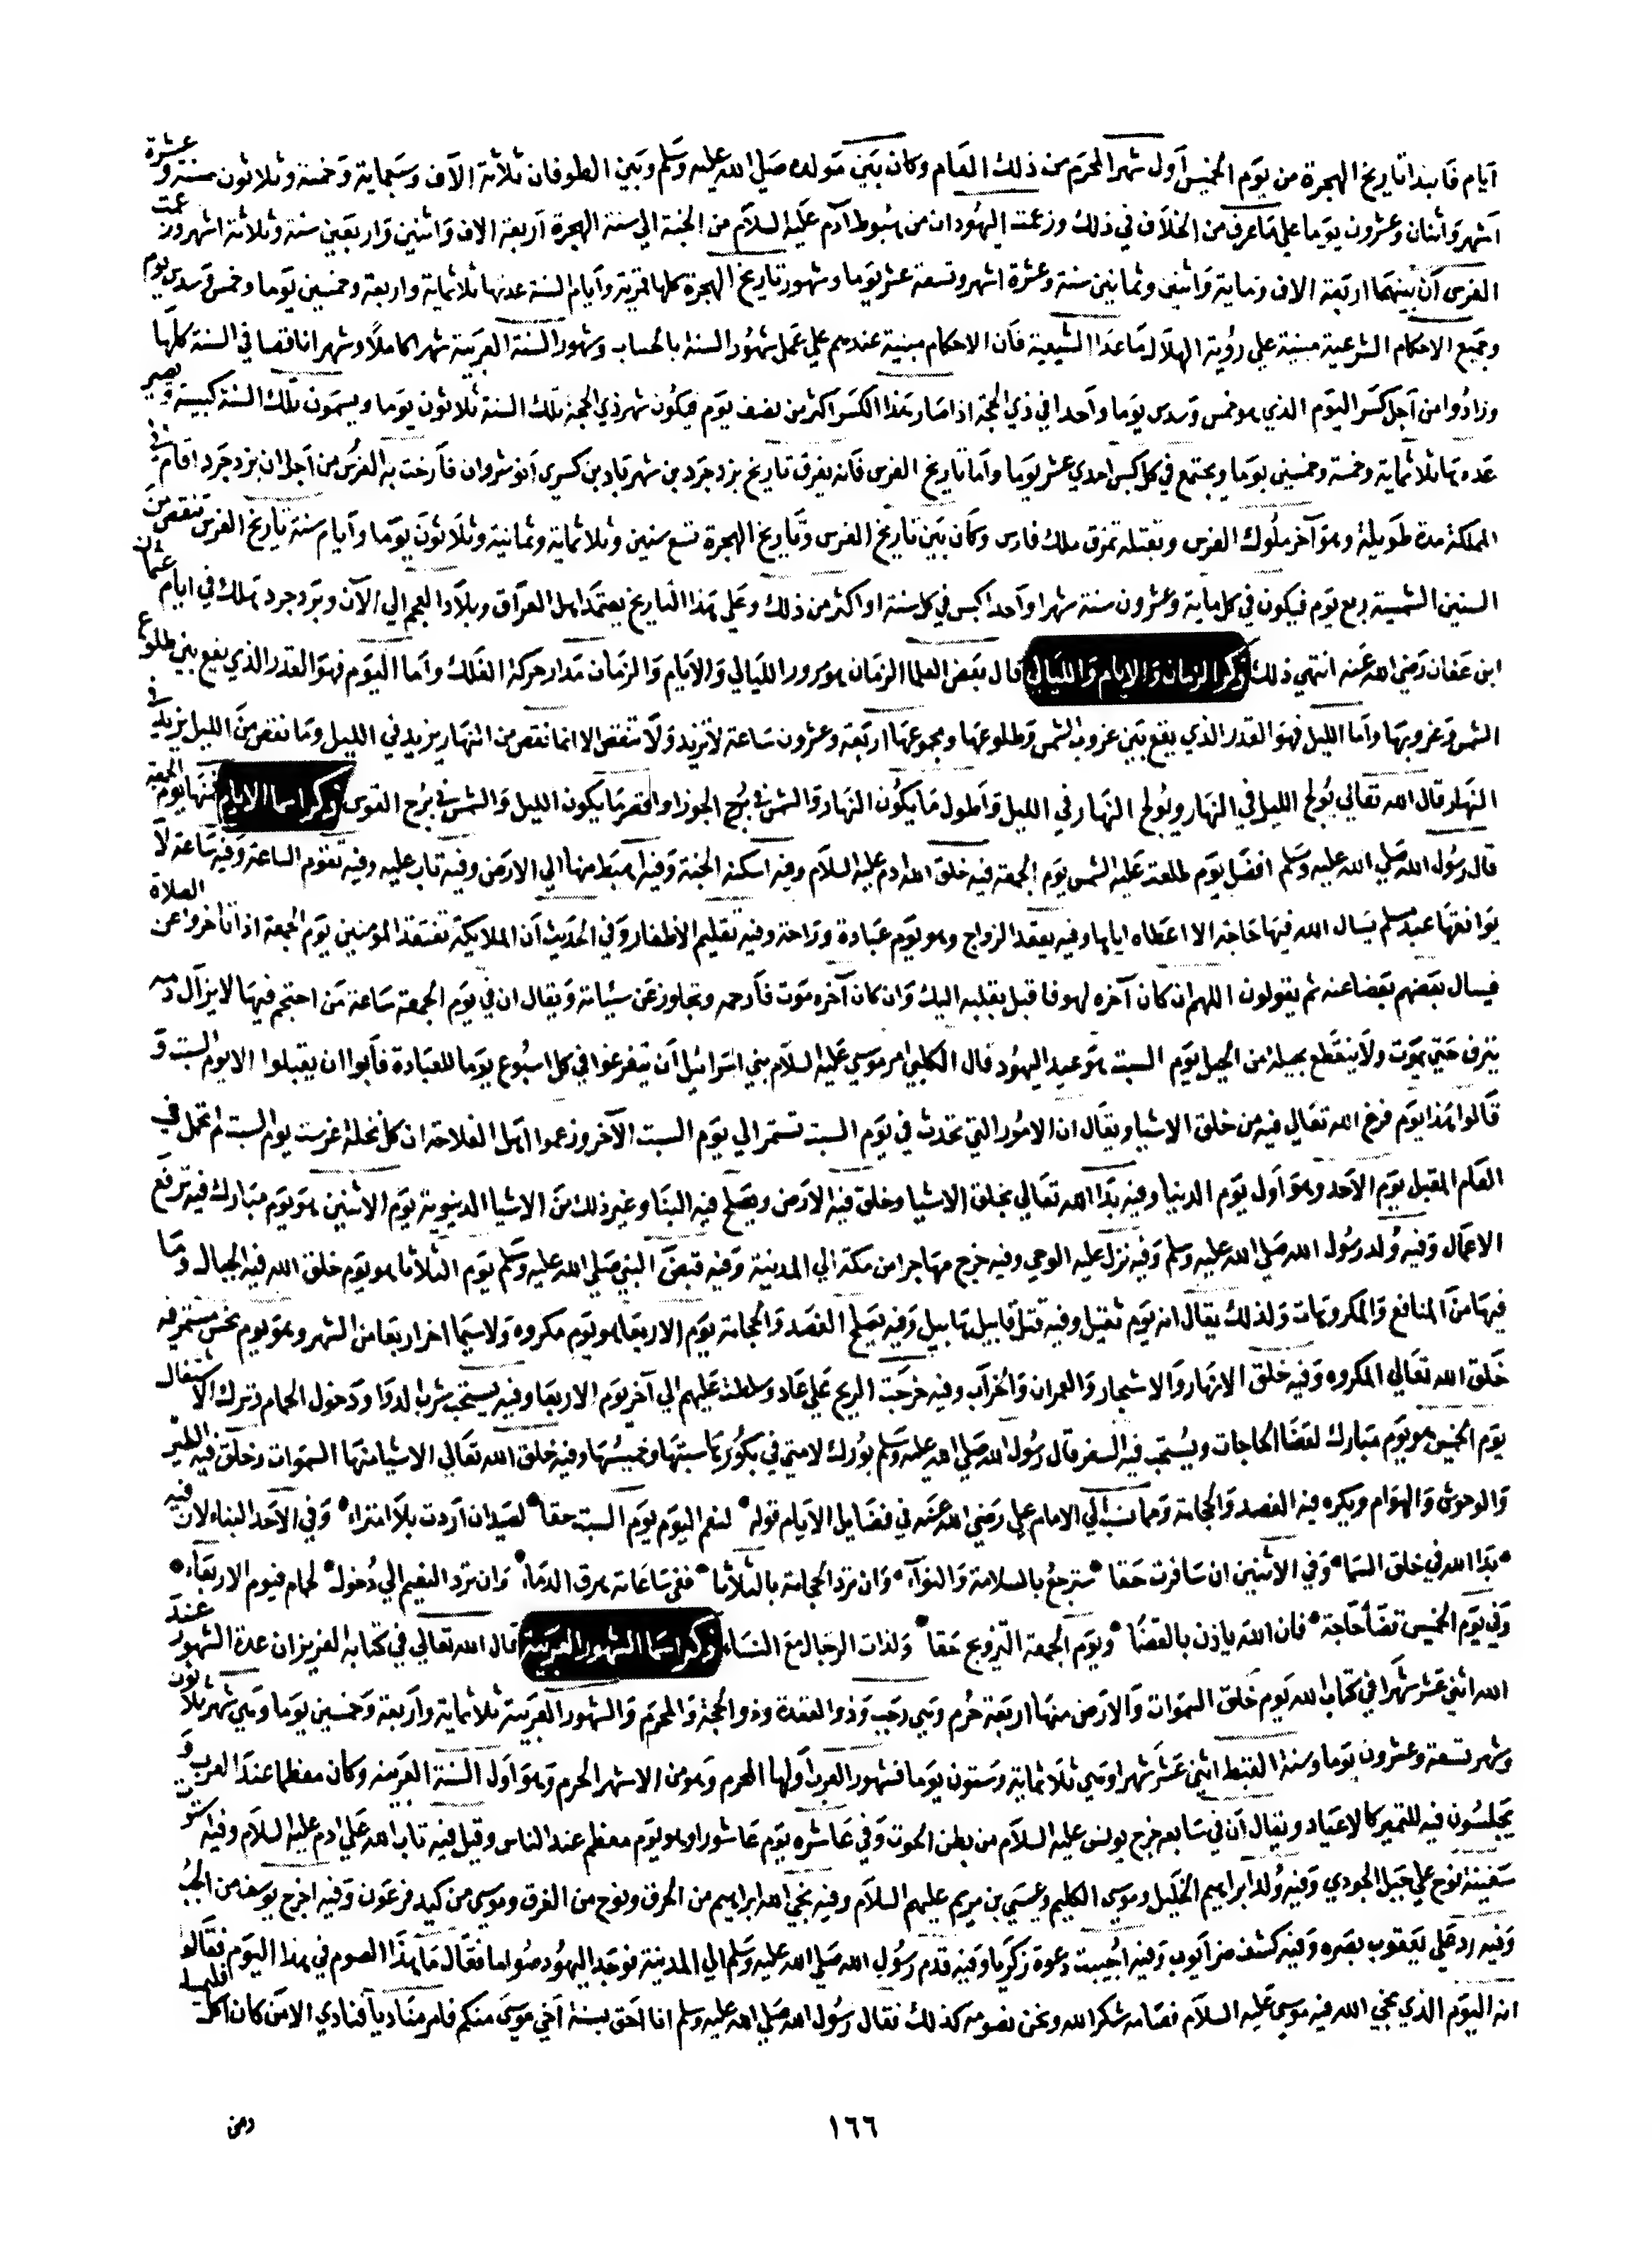 أيام فابتدا تاريخ الهجرة من يوم الخميس أول شهر المحرم من ذلك العام وكان بين مولده صلي الله عليه وسلم وبين الطوفان ثلاثة الآف وسبعماية وخمسة وثلاثون سنة وعشرة
أشهر واثنان وعشرون يوما علي ما عرف من الخلاف في ذلك وزعمت اليهود ان من هبوط آدم عليه السلام من الجنة الي سنة الهجرة أربعة الاف واثنين واربعين سنة وثلاثة اشهر وزعمت
الفرس أن بينهما اربعة الاف وماية واثنين وثمانين سنة وعشرة اشهر وتسعة عشر يوما وشهور تاريخ الهجرة كلها قمرية وأيام السنة عدتها ثلاثماية واربعة وخمسين يوما وخمس وسدس يوم
وجميع الاحكام الشرعية مبنية علي رؤية الهلال ما عدا الشيعية فان الاحكام مبنية عندهم علي عمل شهور السنة بالحساب وشهور السنة العربية شهرا كاملا وشهرا ناقصا في السنة كلها
وزادوا من أجل كسر اليوم الذي هو خمس وسدس يوما واحدا في ذي الحجة اذا صار هذا الكسر اكثر من نصف يوم فيكون شهر ذي الحجة تلك السنة ثلاثون يوما ويسمون تلك السنة كبيسة ويصير
عددها ثلاثماية وخمسة وخمسين يوما ويجتمع في كل كبس احدي عشر يوما وأما تاريخ الفرس فانه يعرف تاريخ يزدجرد بن شهريار بن كسري أنوشروان فأرخت به الفرس من أجل ان يزدجرد اقام في
المملكة مدة طويلة وهو آخر ملوك الفرس وبقتله تمزق ملك فارس وكان بين تاريخ الفرس وتاريخ الهجرة تسع سنين وثلاثماية وثمانية وثلاثون يوما وأيام سنة تاريخ الفرس تنقص من
السنين الشمسية ربع يوم فيكون في كل ماية وعشرون سنة شهرا واحدا كبس في كل سنة او اكثر من ذلك وعلي هذا التاريخ يعتمد اهل العراق وبلاد العجم الي الآن ويزدجرد هلك في ايام عثمان
ابن عفان رضي الله عنه انتهي ذلك ذكر الزمان والايام والليالي قال بعض العلما الزمان هو مرور الليالي والايام والزمان مدار حركة الفلك وأما اليوم فهو القدر الذي يقع بين طلوع
الشمس وغروبها وأما الليل فهو القدر الذي يقع بين غروب الشمس وطلوعها ومجموعها اربعة وعشرون ساعة لا تزيد ولا تنقص الا انما نقص من النهار يزيد في الليل وما نقص من الليل يزيد في
النهار قال الله تعالي يولج الليل في النهار ويولج النهار في الليل وأطول ما يكون النهار والشمس في برج الجوزا واقصر ما يكون الليل والشمس في برج القوس ذكر اسما الايام فمنها يوم الجمعة
قال رسول الله صلي الله عليه وسلم افضل يوم طلعت عليه الشمس يوم الجمعة فيه خلق الله ادم عليه السلام وفيه اسكنه الجنة وفيه اهبط منها الي الارض وفيه تاب عليه وفيه تقوم الساعة وفيه ساعة لا
يوافقها عبد مسلم يسال الله فيها حاجة الا اعطاه اياها وفيه يعقد الزواج وهو يوم عبادة وراحة وفيه تقليم الأظفار وفي الحديث أن الملايكة تفتقد المؤمنين يوم الجمعة اذا تأخروا عن الصلاة
فيسال بعضهم بعضا عنه ثم يقولون اللهم ان كان آخره لهو فاقبل بقلبه اليك وان كان آخره موت فأرحمه وتجاوز عن سيئاته ويقال ان في يوم الجمعة ساعة من احتجم فيها لا يزال دمه
ينزف حتي يموت ولا ينقطع بحيلة من الحيل يوم السبت هو عيد اليهود قال الكلبي امر موسي عليه السلام بني اسرائيل أن يتفرغوا في كل اسبوع يوما للعبادة فأبوا ان يقبلوا الا يوم السبت و
قالوا هذا يوم فرغ الله تعالي فيه من خلق الاشيا ويقال ان الامور التي تحدث في يوم السبت تستمر الي يوم السبت الآخر وزعموا اهل الفلاحة ان كل نخلة غرست يوم السبت لم تحمل في
العام المقبل يوم الأحد وهو أول يوم الدنيا وفيه بدا الله تعالي بخلق الاشيا وخلق فيه الارض ويصلح فيه البنا وغير ذلك من الاشيا الدنيوية يوم الاثنين هو يوم مبارك فيه ترفع
الاعمال وفيه ولد رسول الله صلي الله عليه وسلم وفيه نزل عليه الوحي وفيه خرج مهاجرا من مكة الي المدينة وفيه قبض النبي صلي الله عليه وسلم يوم الثلاثا هو يوم خلق الله فيه الجبال وما
فيها من المنافع والمكروهات ولذلك يقال انه يوم ثقيل وفيه قتل قابيل هابيل وفيه يصلح الفصد والحجامة يوم الاربعا هو يوم مكروه ولا سيما اخر اربعا من الشهر وهو يوم نحس مستمر فيه
خلق الله تعالي المكروه وفيه خلق الانهار والاشجار والعمران والخراب وفيه خرجت الريح علي عاد وسلطت عليهم الي آخر يوم الاربعا وفيه يستحب شرب الدوا ودخول الحمام وترك الاشتغال
يوم الخميس هو يوم مبارك لقضا الحاجات ويستحب فيه السفر قال رسول الله صلي الله عليه وسلم بورك لامتي في بكورها سبتها وخميسها وفيه خلق الله تعالي الاشيا منها السموات وخلق فيه الطير
والوحوش والهوام ويكره فيه الفصد والحجامة ومما نسب الي الامام علي رضي الله عنه في فضايل الأيام قوله لنعم اليوم يوم السبت حقا لصيد ان اردت بلا امتراء وفي الأحد البناء لان فيه
بدا الله في خلق السما وفي الاثنين ان سافرت حقا سترجع بالسلامة والنوآء وان ترد الحجامة بالثلاثا ففي ساعاته هرق الدماء وان ترد النعيم الي دخول لحمام فيوم الاربعاء
وفي يوم الخميس تضا حاجة فان الله ياذن بالقضا ويوم الجمعة التزويج حقا ولذات الرجال مع النساء ذكر اسما الشهور العربية قال الله تعالي في كتابه العزيز ان عدة الشهور عند
الله اثني عشر شهرا في كتاب الله يوم خلق السموات والارض منها اربعة حرم وهي رجب وذو القعدة وذو الحجة والمحرم والشهور العربية ثلاثماية وأربعة وخمسين يوما وهي شهر ثلاثون
وشهر تسعة وعشرون يوما وسنة القبط اثني عشر شهرا وهي ثلاثماية وستون يوما فشهور العرب أولها المحرم وهو من الاشهر الحرم وهو اول السنة العربية وكان معظما عند العرب و
يجلسون فيه للتعزير كالاعياد ويقال أن في سابعه خرج يونس عليه السلام من بطن الحوت وفي عاشره يوم عاشورا وهو يوم معظم عند الناس وقيل فيه تاب الله علي ادم عليه السلام وفيه استوت
سفينة نوح علي جبل الجودي وفيه ولد ابراهيم الخليل وموسي الكليم وعيسي بن مريم عليهم السلام وفيه نجي الله ابراهيم من الحرق ونوح من الغرق وموسي من كيد فرعون وفيه اخرج يوسف من الجب
وفيه رد علي يعقوب بصره وفيه كشف ضر أيوب وفيه اجيبت دعوة زكريا وفيه قدم رسول الله صلي الله عليه وسلم الي المدينة فوجد اليهود صواما فقال ما هذا الصوم في هذا اليوم فقالوا
انه اليوم الذي نجي الله فيه موسي عليه السلام فصامه شكرا لله ونحن نصومه كذلك فقال رسول الله صلي الله عليه وسلم انا احق بسنة أخي موسي منكم فامر مناديا فنادي الا من كان اكل فليمسك
١٦٦
ومن